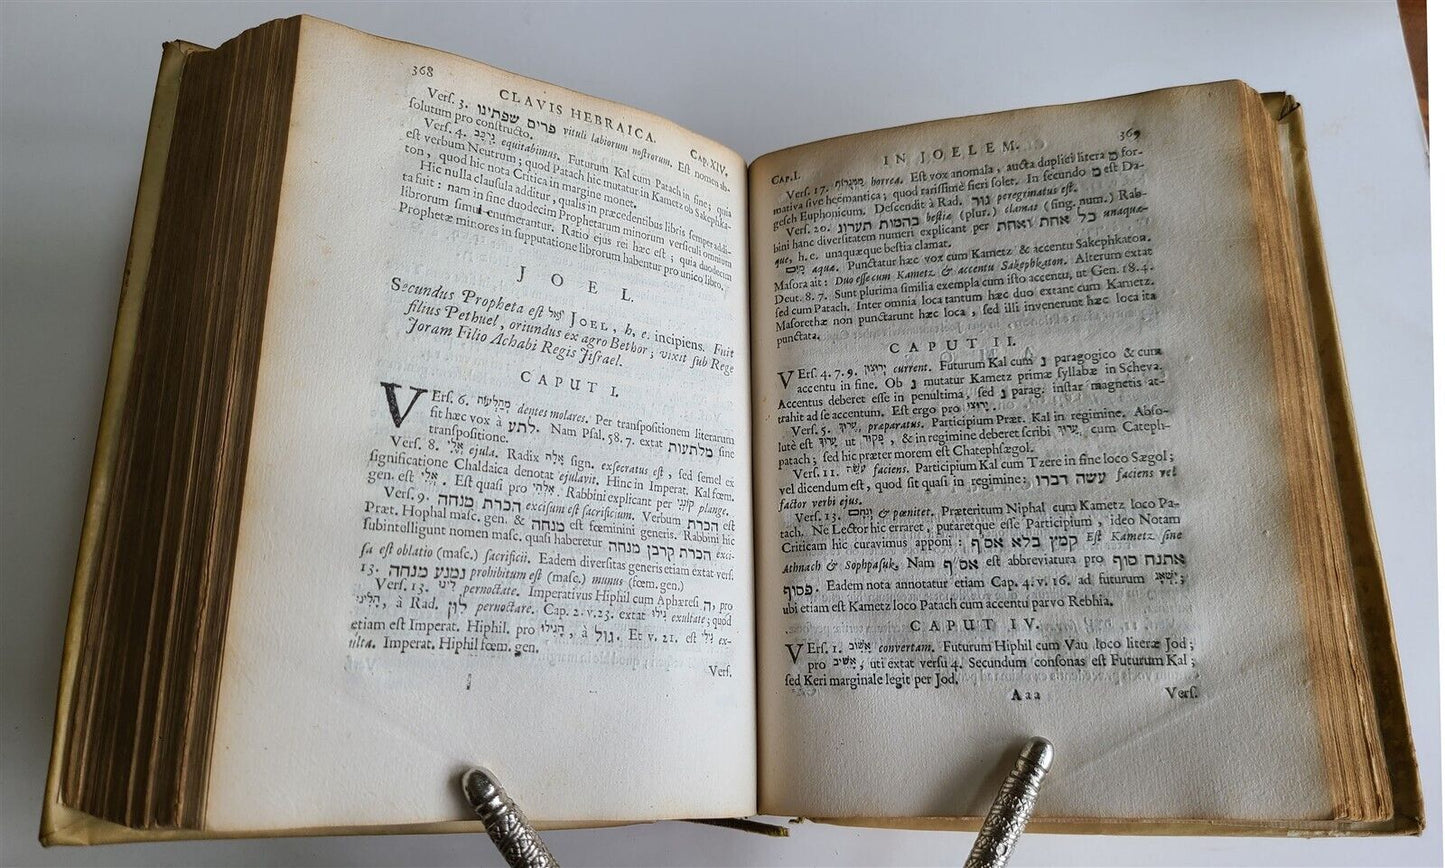 368
CLAVIS HEBRAICA.
Cap. XIV.
Verſ. 3. פרים שפתינו vituli labiorum noſtrorum. Eſt nomen ab-
ſolutum pro conſtructo.
Verſ. 4. נִרְכָּב equitabimus. Futurum Kal cum Patach in fine; quia
eſt verbum Neutrum; quod Patach hic mutatur in Kametz ob Sakephka-
ton, quod hic nota Critica in margine monet.
Hic nulla clauſula additur, qualis in præcedentibus libris ſemper addi-
ta fuit: nam in fine duodecim Prophetarum minorum verſiculi omnium
librorum ſimul enumerantur. Ratio ejus rei hæc eſt; quia duodecim
Prophetæ minores in ſupputatione librorum habentur pro unico libro.
JOEL.
Secundus Propheta eſt יואל JOEL, h. e. incipiens. Fuit
filius Pethuel, oriundus ex agro Bethor; vixit ſub Rege
Joram Filio Achabi Regis Jiſrael.
CAPUT I.
VErſ. 6. מְתַלְּעוֹת dentes molares. Per tranſpoſitionem literarum
fit hæc vox à לתע. Nam Pſal. 58. 7. extat מלתעות ſine
tranſpoſitione.
Verſ. 8. אֱלִי ejula. Radix אלה ſign. exſecratus eſt, ſed ſemel ex
ſignificatione Chaldaica denotat ejulavit. Hinc in Imperat. Kal fœm.
gen. eſt אֱלִי. Eſt quaſi pro אלהי. Rabbini explicant per קונני plange.
Verſ. 9. הכרת מנחה exciſum eſt ſacrificium. Verbum הכרת eſt
Præt. Hophal maſc. gen. & מנחה eſt fœminini generis. Rabbini hic
ſubintelligunt nomen maſc. quaſi haberetur הכרת קרבן מנחה exci-
ſa eſt oblatio (maſc.) ſacrificii. Eadem diverſitas generis etiam extat verſ.
13. נמנע מנחה prohibitum eſt (maſc.) munus (fœm. gen.)
Verſ. 13. לינו pernoctate. Imperativus Hiphil cum Aphæreſi ה, pro
הלינו, à Rad. לון pernoctare. Cap. 2. v. 23. extat גילו exultate; quod
etiam eſt Imperat. Hiphil. pro הגילו, à גול. Et v. 21. eſt גילי ex-
ulta. Imperat. Hiphil fœm. gen.
Verſ.
Cap. I.
IN JOELEM.
369
Verſ. 17. ממגרות horrea. Eſt vox anomala, aucta duplici litera מ for-
mativa ſive heemantica; quod rariſſimè fieri ſolet. In ſecundo מ eſt Da-
geſch Euphonicum. Deſcendit à Rad. גור peregrinatus eſt.
Verſ. 20. בהמות תערוג beſtiæ (plur.) clamat (ſing. num.) Rab-
bini hanc diverſitatem numeri explicant per כל אחת ואחת unaquæ-
que, h. e. unaquæque beſtia clamat.
מָיִם aqua. Punctatur hæc vox cum Kametz & accentu Sakephkaton.
Maſora ait: Duo eſſe cum Kametz & accentu Sakephkaton. Alterum extat
Deut. 8. 7. Sunt plurima ſimilia exempla cum iſto accentu, ut Gen. 18. 4.
ſed cum Patach. Inter omnia loca tantum hæc duo extant cum Kametz.
Maſorethæ non punctarunt hæc loca, ſed illi invenerunt hæc loca ita
punctata.
CAPUT II.
VErſ. 4. 7. 9. ירוצון current. Futurum Kal cum נ paragogico & cum
accentu in fine. Ob נ mutatur Kametz primæ ſyllabæ in Scheva.
Accentus deberet eſſe in penultima, ſed נ parag. inſtar magnetis at-
trahit ad ſe accentum. Eſt ergo pro ירוצו.
Verſ. 5. ערוך, præparatus. Participium Præt. Kal in regimine. Abſo-
lutè eſt ערוך ut פקוד, & in regimine deberet ſcribi ערוך, cum Cateph-
patach; ſed hic præter morem eſt Chatephſægol.
Verſ. 11. עשה faciens. Participium Kal cum Tzere in fine loco Sægol;
vel dicendum eſt, quod ſit quaſi in regimine: עשה דברו faciens vel
factor verbi ejus.
Verſ. 13. ונחם & pœnitet. Præteritum Niphal cum Kametz loco Pa-
tach. Ne Lector hic erraret, putaretque eſſe Participium, ideo Notam
Criticam hic curavimus apponi: קמץ בלא אס״ף Eſt Kametz ſine
Athnach & Sophpaſuk. Nam אס״ף eſt abbreviatura pro אתנח סוף
פסוק. Eadem nota annotatur etiam Cap. 4. v. 16. ad futurum ישאג;
ubi etiam eſt Kametz loco Patach cum accentu parvo Rebhia.
CAPUT IV.
VErſ. 1. אשוב convertam. Futurum Hiphil cum Vau loco literæ Jod;
pro אשיב, uti extat verſu 4. Secundum conſonas eſt Futurum Kal;
ſed Keri marginale legit per Jod.
Aaa
Verſ.